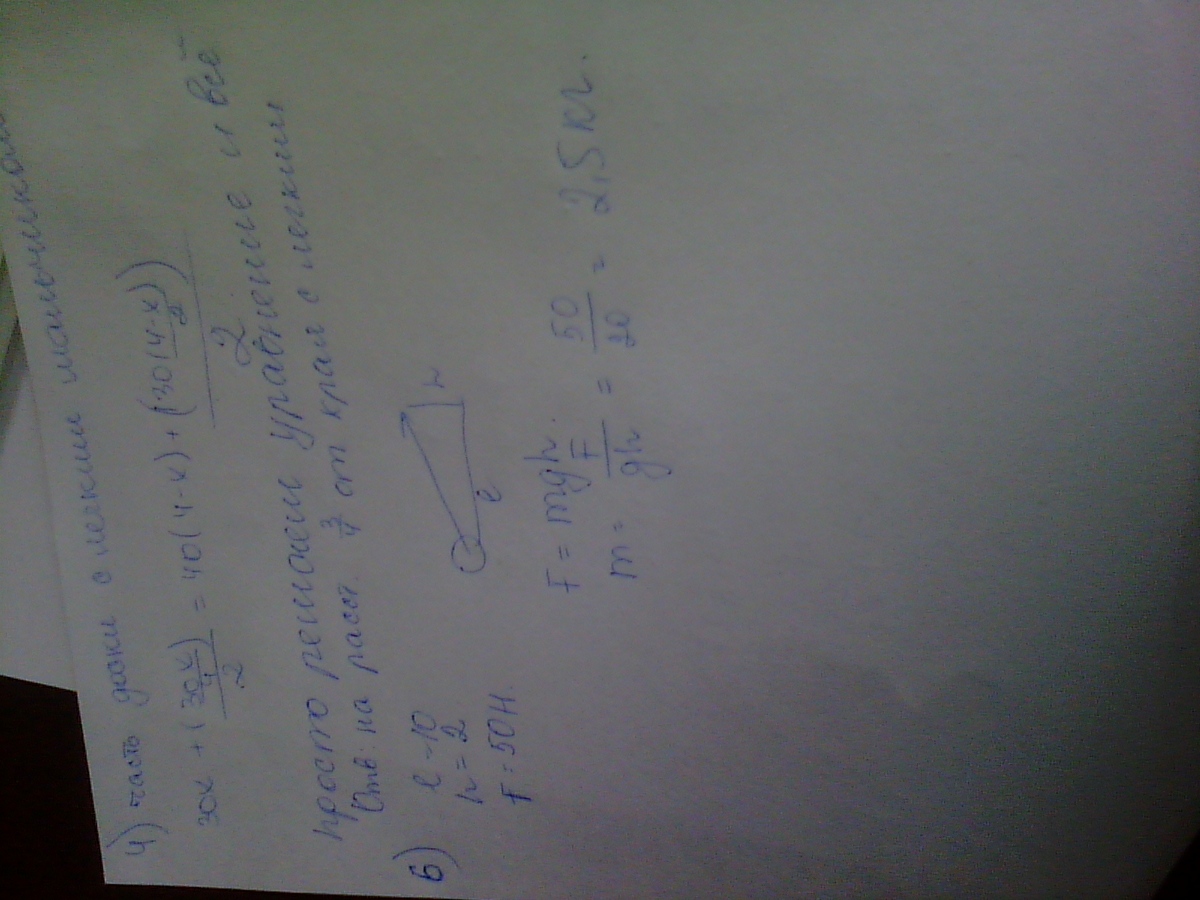 4) часть доски с легким мальчиком
30x + (30x/4)/2 = 40(4-x) + (30(4-x)/2)/2
просто решаем уравнение и всё
Отв: на расст. 3/4 от края с легким
6) l - 10
h = 2
F = 50 Н.
l
h
F = mgh.
m = F/gh = 50/20 = 2,5 кг.